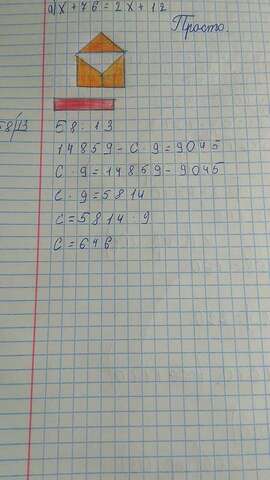 а) х + 76 = 2х + 12
Просто.
58/13
58 · 13
14859 - С · 9 = 9045
С · 9 = 14859 - 9045
С · 9 = 5814
С = 5814 · 9
С = 646